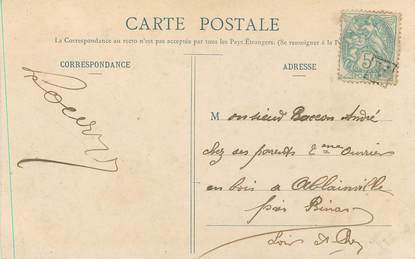 CARTE POSTALE
La Correspondance au recto n'est pas acceptée par tous les Pays Étrangers. (Se renseigner à la
CORRESPONDANCE
ADRESSE
Monsieur Baccon André
chez ses parents Ouvrier
en bois à Ablainville
près Binas
Loir et Cher